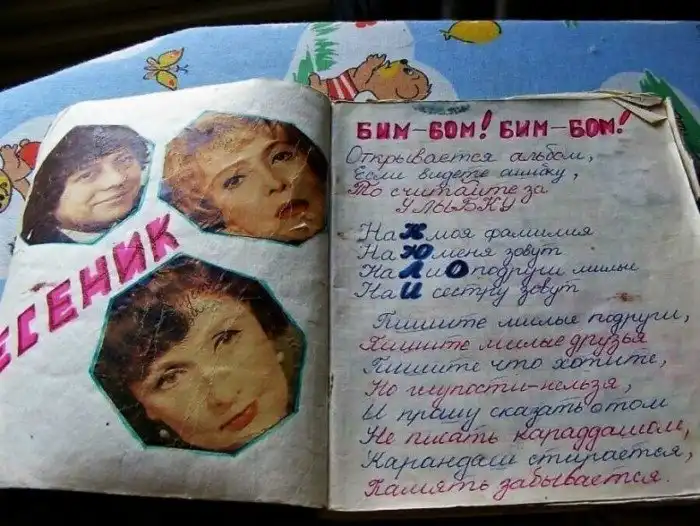 ЕСЕНИК
БИМ-БОМ! БИМ-БОМ!
Открывается альбом,
Если видете ошибку,
То считайте за
УЛЫБКУ
На Ж моя фамилия
На Ю меня зовут
На Л и О подруги милые
На И сестру зовут
Пишите милые подруги,
Пишите милые друзья
Пишите что хотите,
Но глупости-нельзя,
И прошу сказать о том
Не писать караддашом,
Карандаш стирается,
Память забывается.